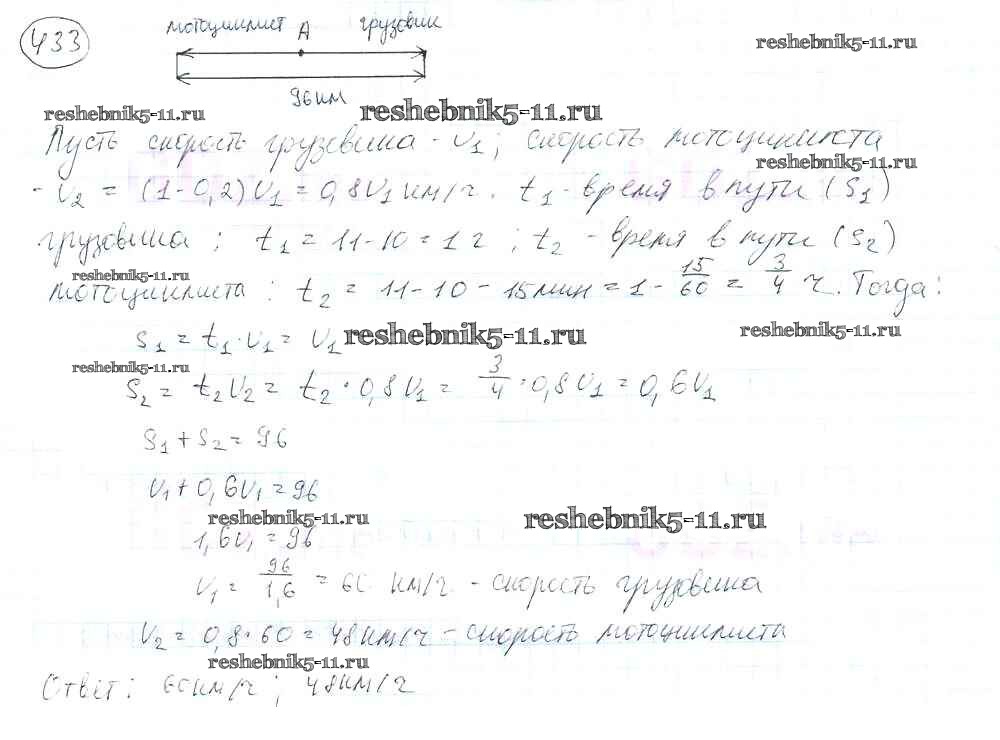 433
мотоциклист А грузовик
reshebnik5-11.ru
96 км
reshebnik5-11.ru
reshebnik5-11.ru
Пусть скорость грузовика - v₁; скорость мотоциклиста
reshebnik5-11.ru
- v₂ = (1-0,2)v₁ = 0,8v₁ км/ч. t₁ - время в пути (S₁)
грузовика; t₁ = 11-10 = 1 ч; t₂ - время в пути (S₂)
reshebnik5-11.ru
мотоциклиста: t₂ = 11-10-15мин = 1 - 15/60 = 3/4 ч. Тогда:
S₁ = t₁·v₁ = v₁
reshebnik5-11.ru
reshebnik5-11.ru
reshebnik5-11.ru
S₂ = t₂v₂ = t₂·0,8v₁ = 3/4·0,8v₁ = 0,6v₁
S₁ + S₂ = 96
v₁ + 0,6v₁ = 96
reshebnik5-11.ru
reshebnik5-11.ru
1,6v₁ = 96
v₁ = 96/1,6 = 60 км/ч - скорость грузовика
v₂ = 0,8·60 = 48км/ч - скорость мотоциклиста
reshebnik5-11.ru
Ответ: 60км/ч; 48км/ч